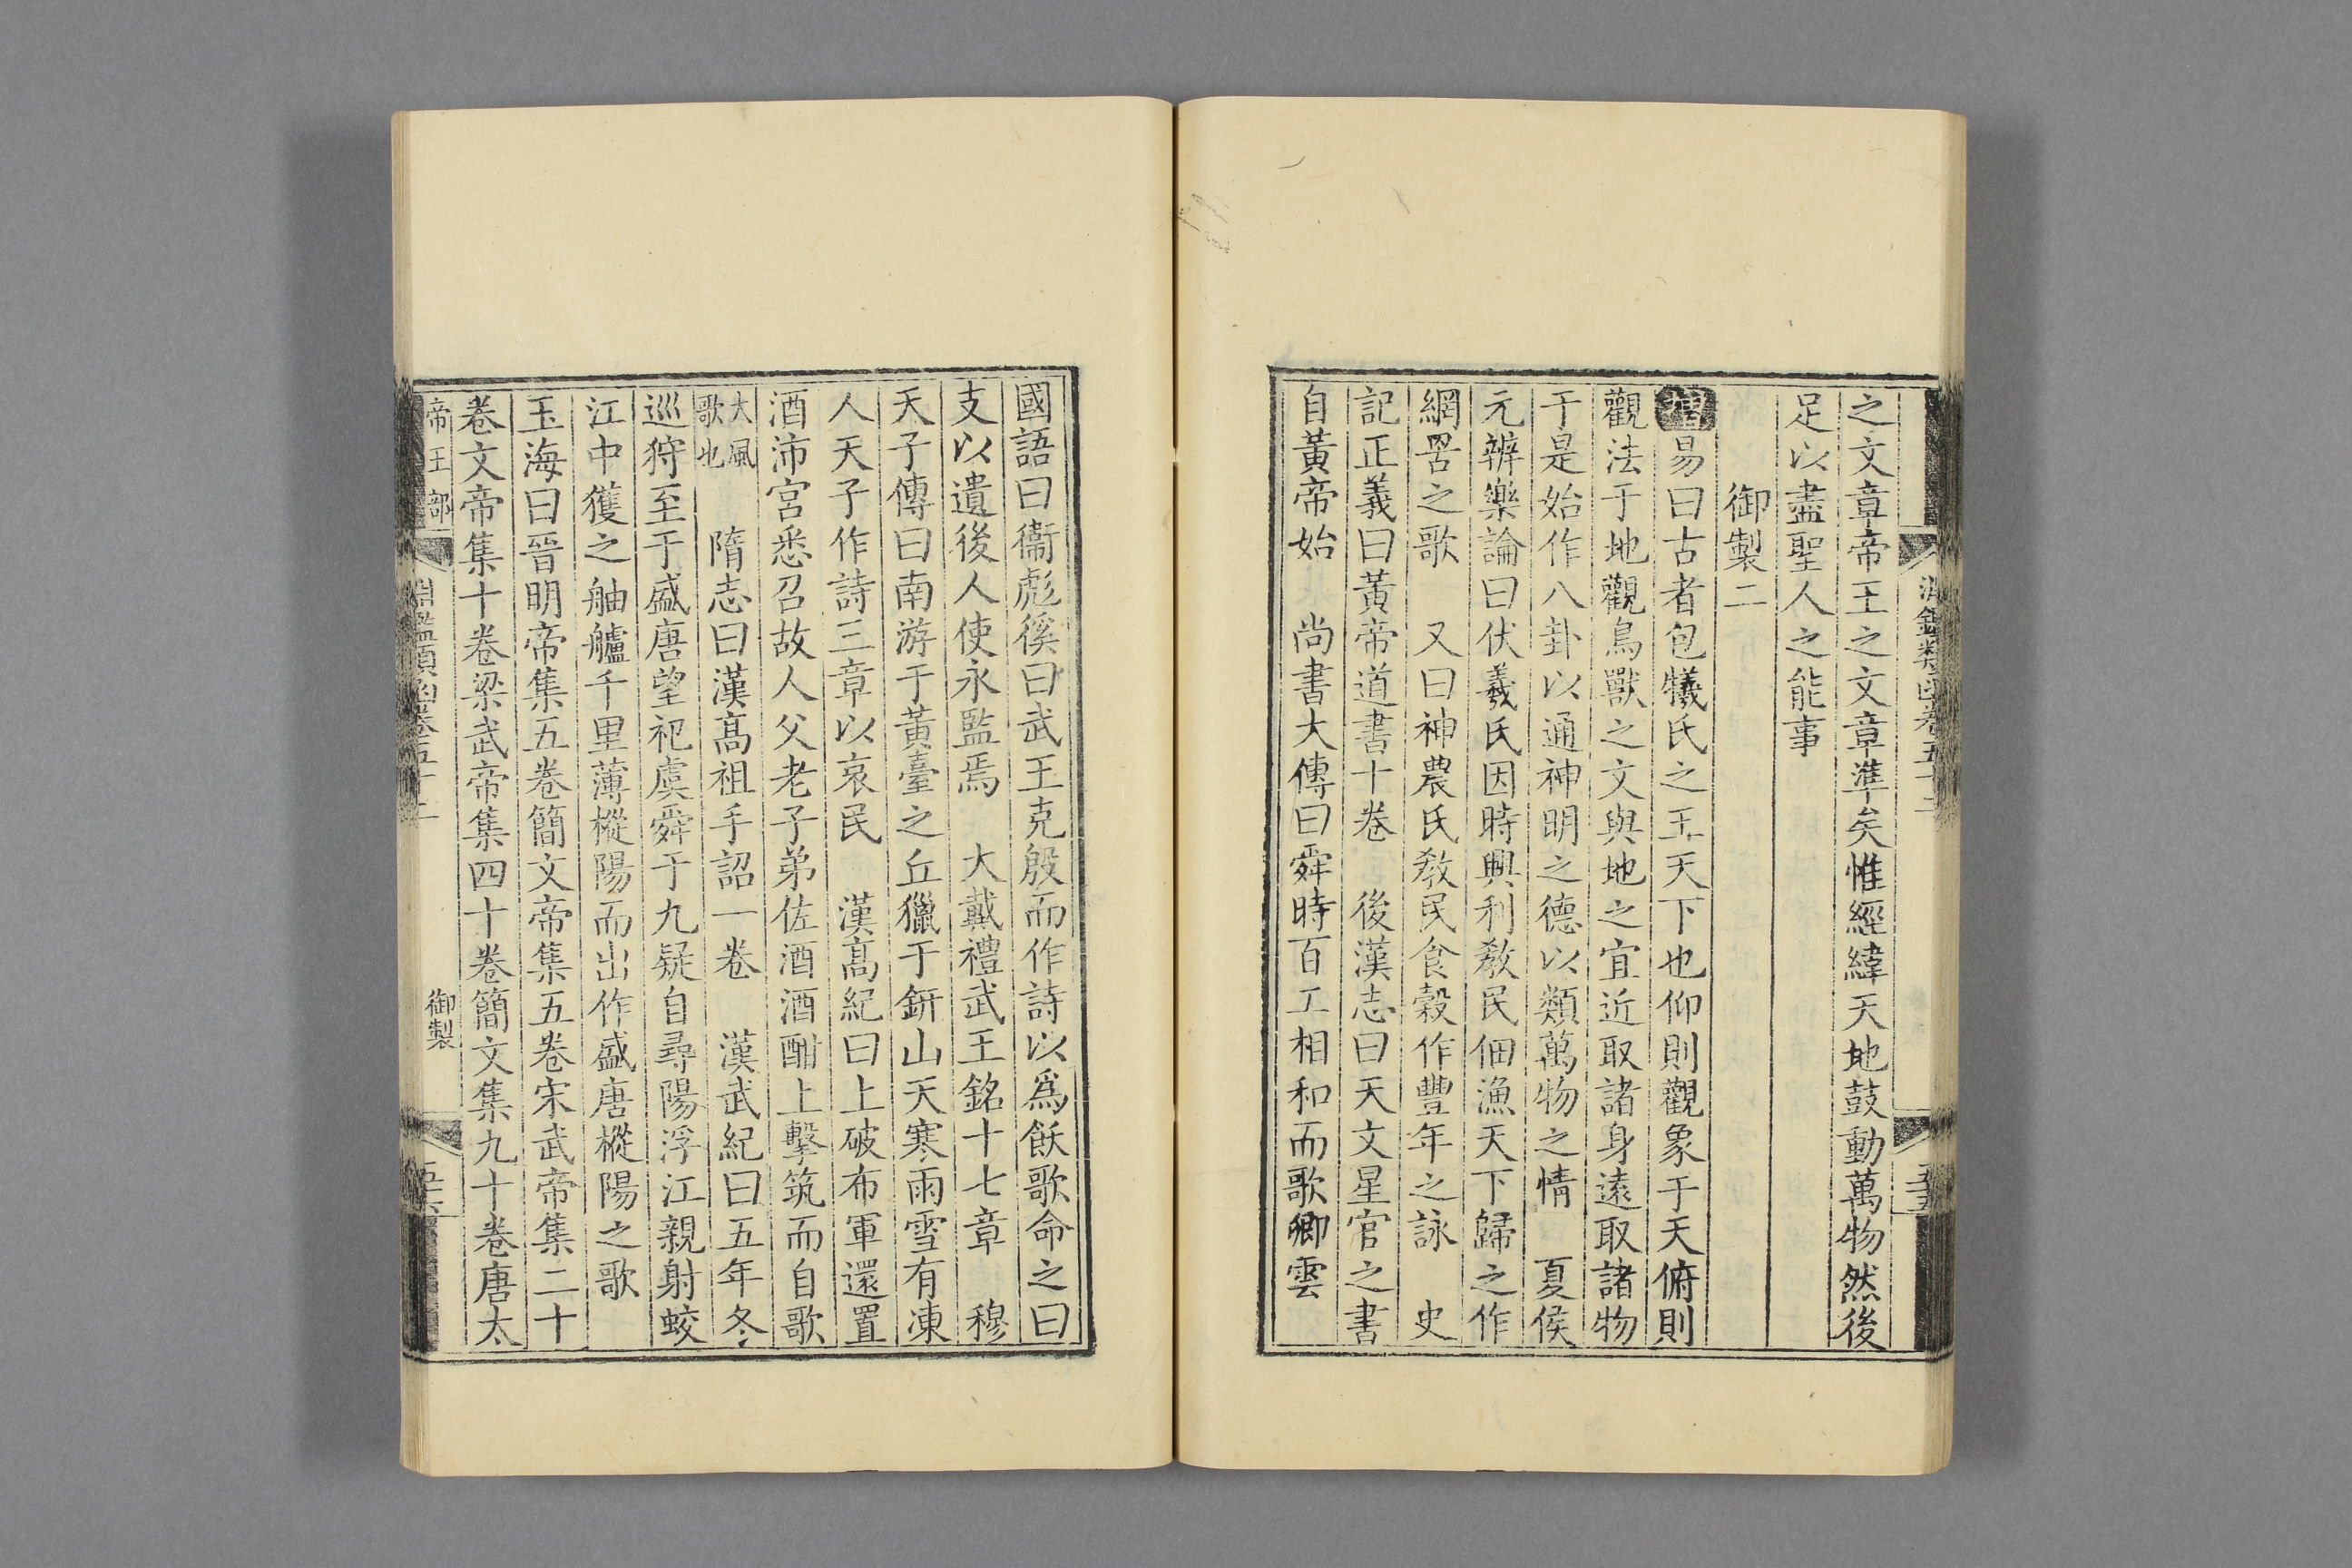 之文章帝王之文章準矣惟經緯天地鼓動萬物然後
足以盡聖人之能事
御製二
增易曰古者包犧氏之王天下也仰則觀象于天俯則
觀法于地觀鳥獸之文與地之宜近取諸身遠取諸物
于是始作八卦以通神明之德以類萬物之情　夏侯
元辨樂論曰伏羲氏因時興利敎民佃漁天下歸之作
網罟之歌　又曰神農氏敎民食穀作豐年之詠　史
記正義曰黃帝道書十卷　後漢志曰天文星官之書
自黃帝始　尚書大傳曰舜時百工相和而歌卿雲
國語曰衞彪徯曰武王克殷而作詩以爲飫歌命之曰
支以遺後人使永監焉　大戴禮武王銘十七章　穆
天子傳曰南游于黃臺之丘獵于鈃山天寒雨雪有凍
人天子作詩三章以哀民　漢高紀曰上破布軍還置
酒沛宮悉召故人父老子弟佐酒酒酣上擊筑而自歌
大風歌也　隋志曰漢高祖手詔一卷　漢武紀曰五年冬
巡狩至于盛唐望祀虞舜于九疑自尋陽浮江親射蛟
江中獲之舳艫千里薄樅陽而出作盛唐樅陽之歌
玉海曰晉明帝集五卷簡文帝集五卷宋武帝集二十
卷文帝集十卷梁武帝集四十卷簡文集九十卷唐太
帝王部　御製